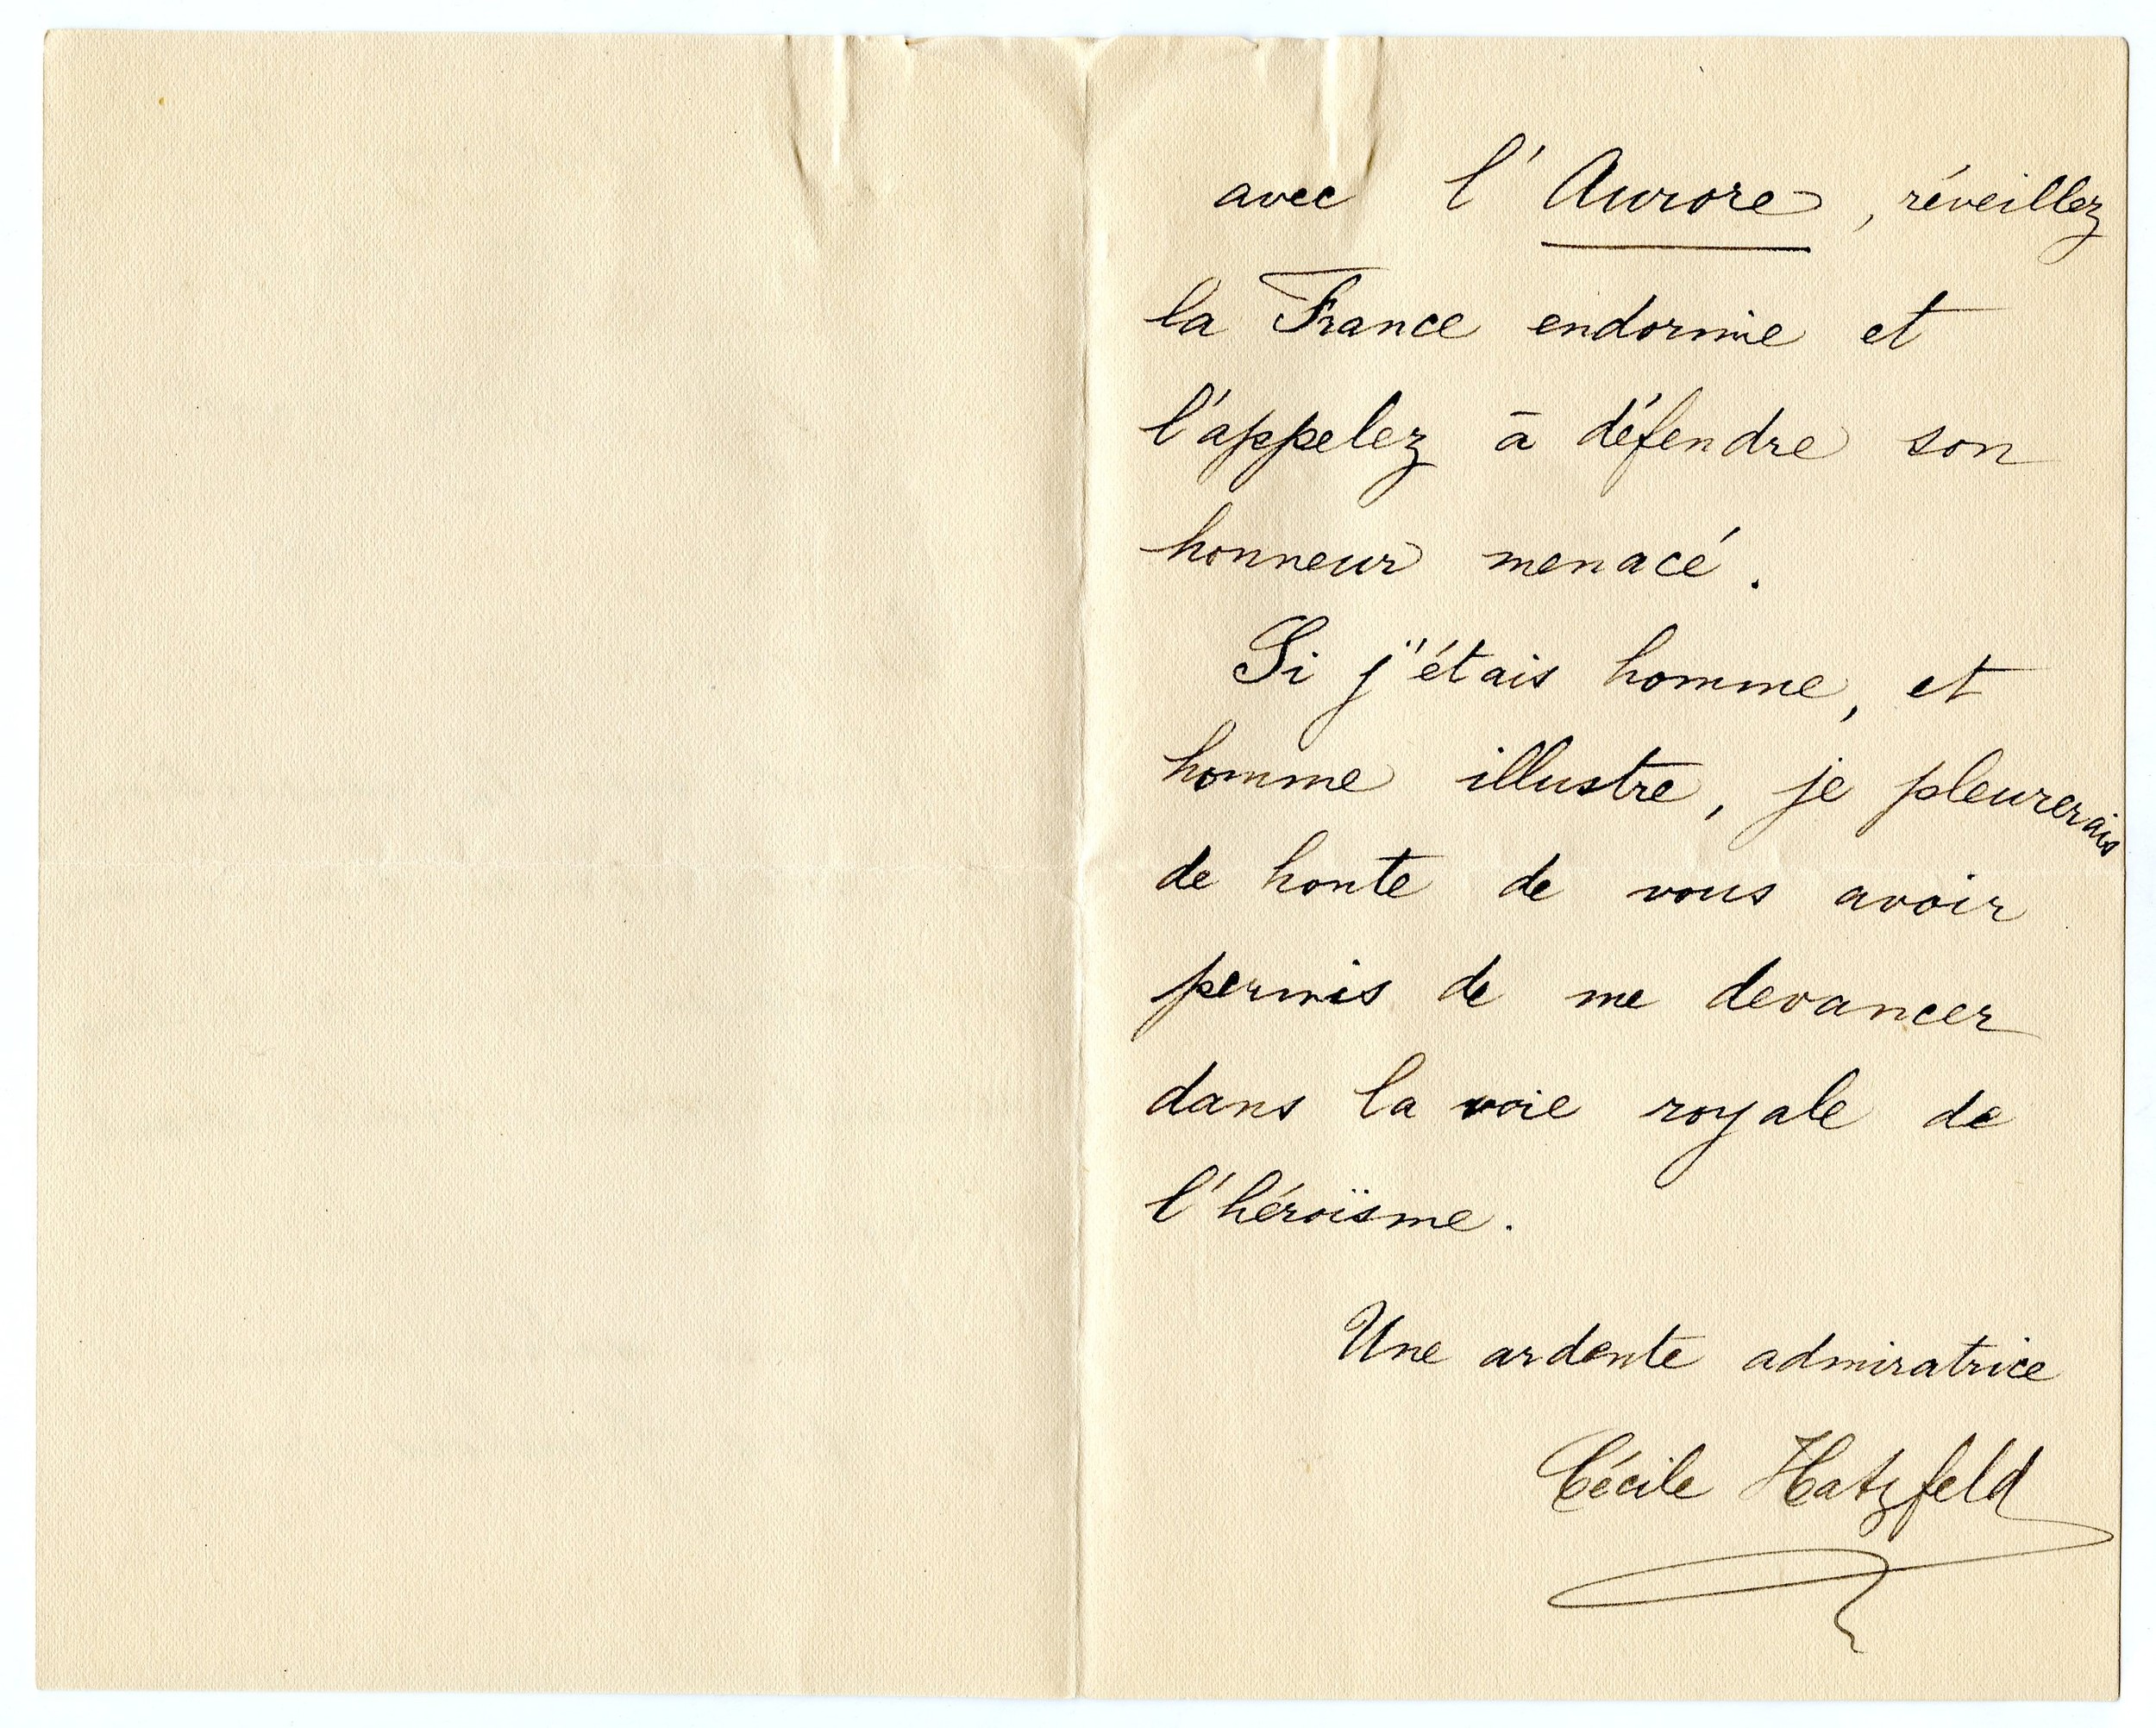 avec l'Aurore, réveillez
la France endormie et
l'appelez à défendre son
honneur menacé.
Si j'étais homme, et
homme illustre, je pleurerais
de honte de vous avoir
permis de me devancer
dans la voie royale de
l'héroïsme.
Une ardente admiratrice
Cécile Hatzfeld